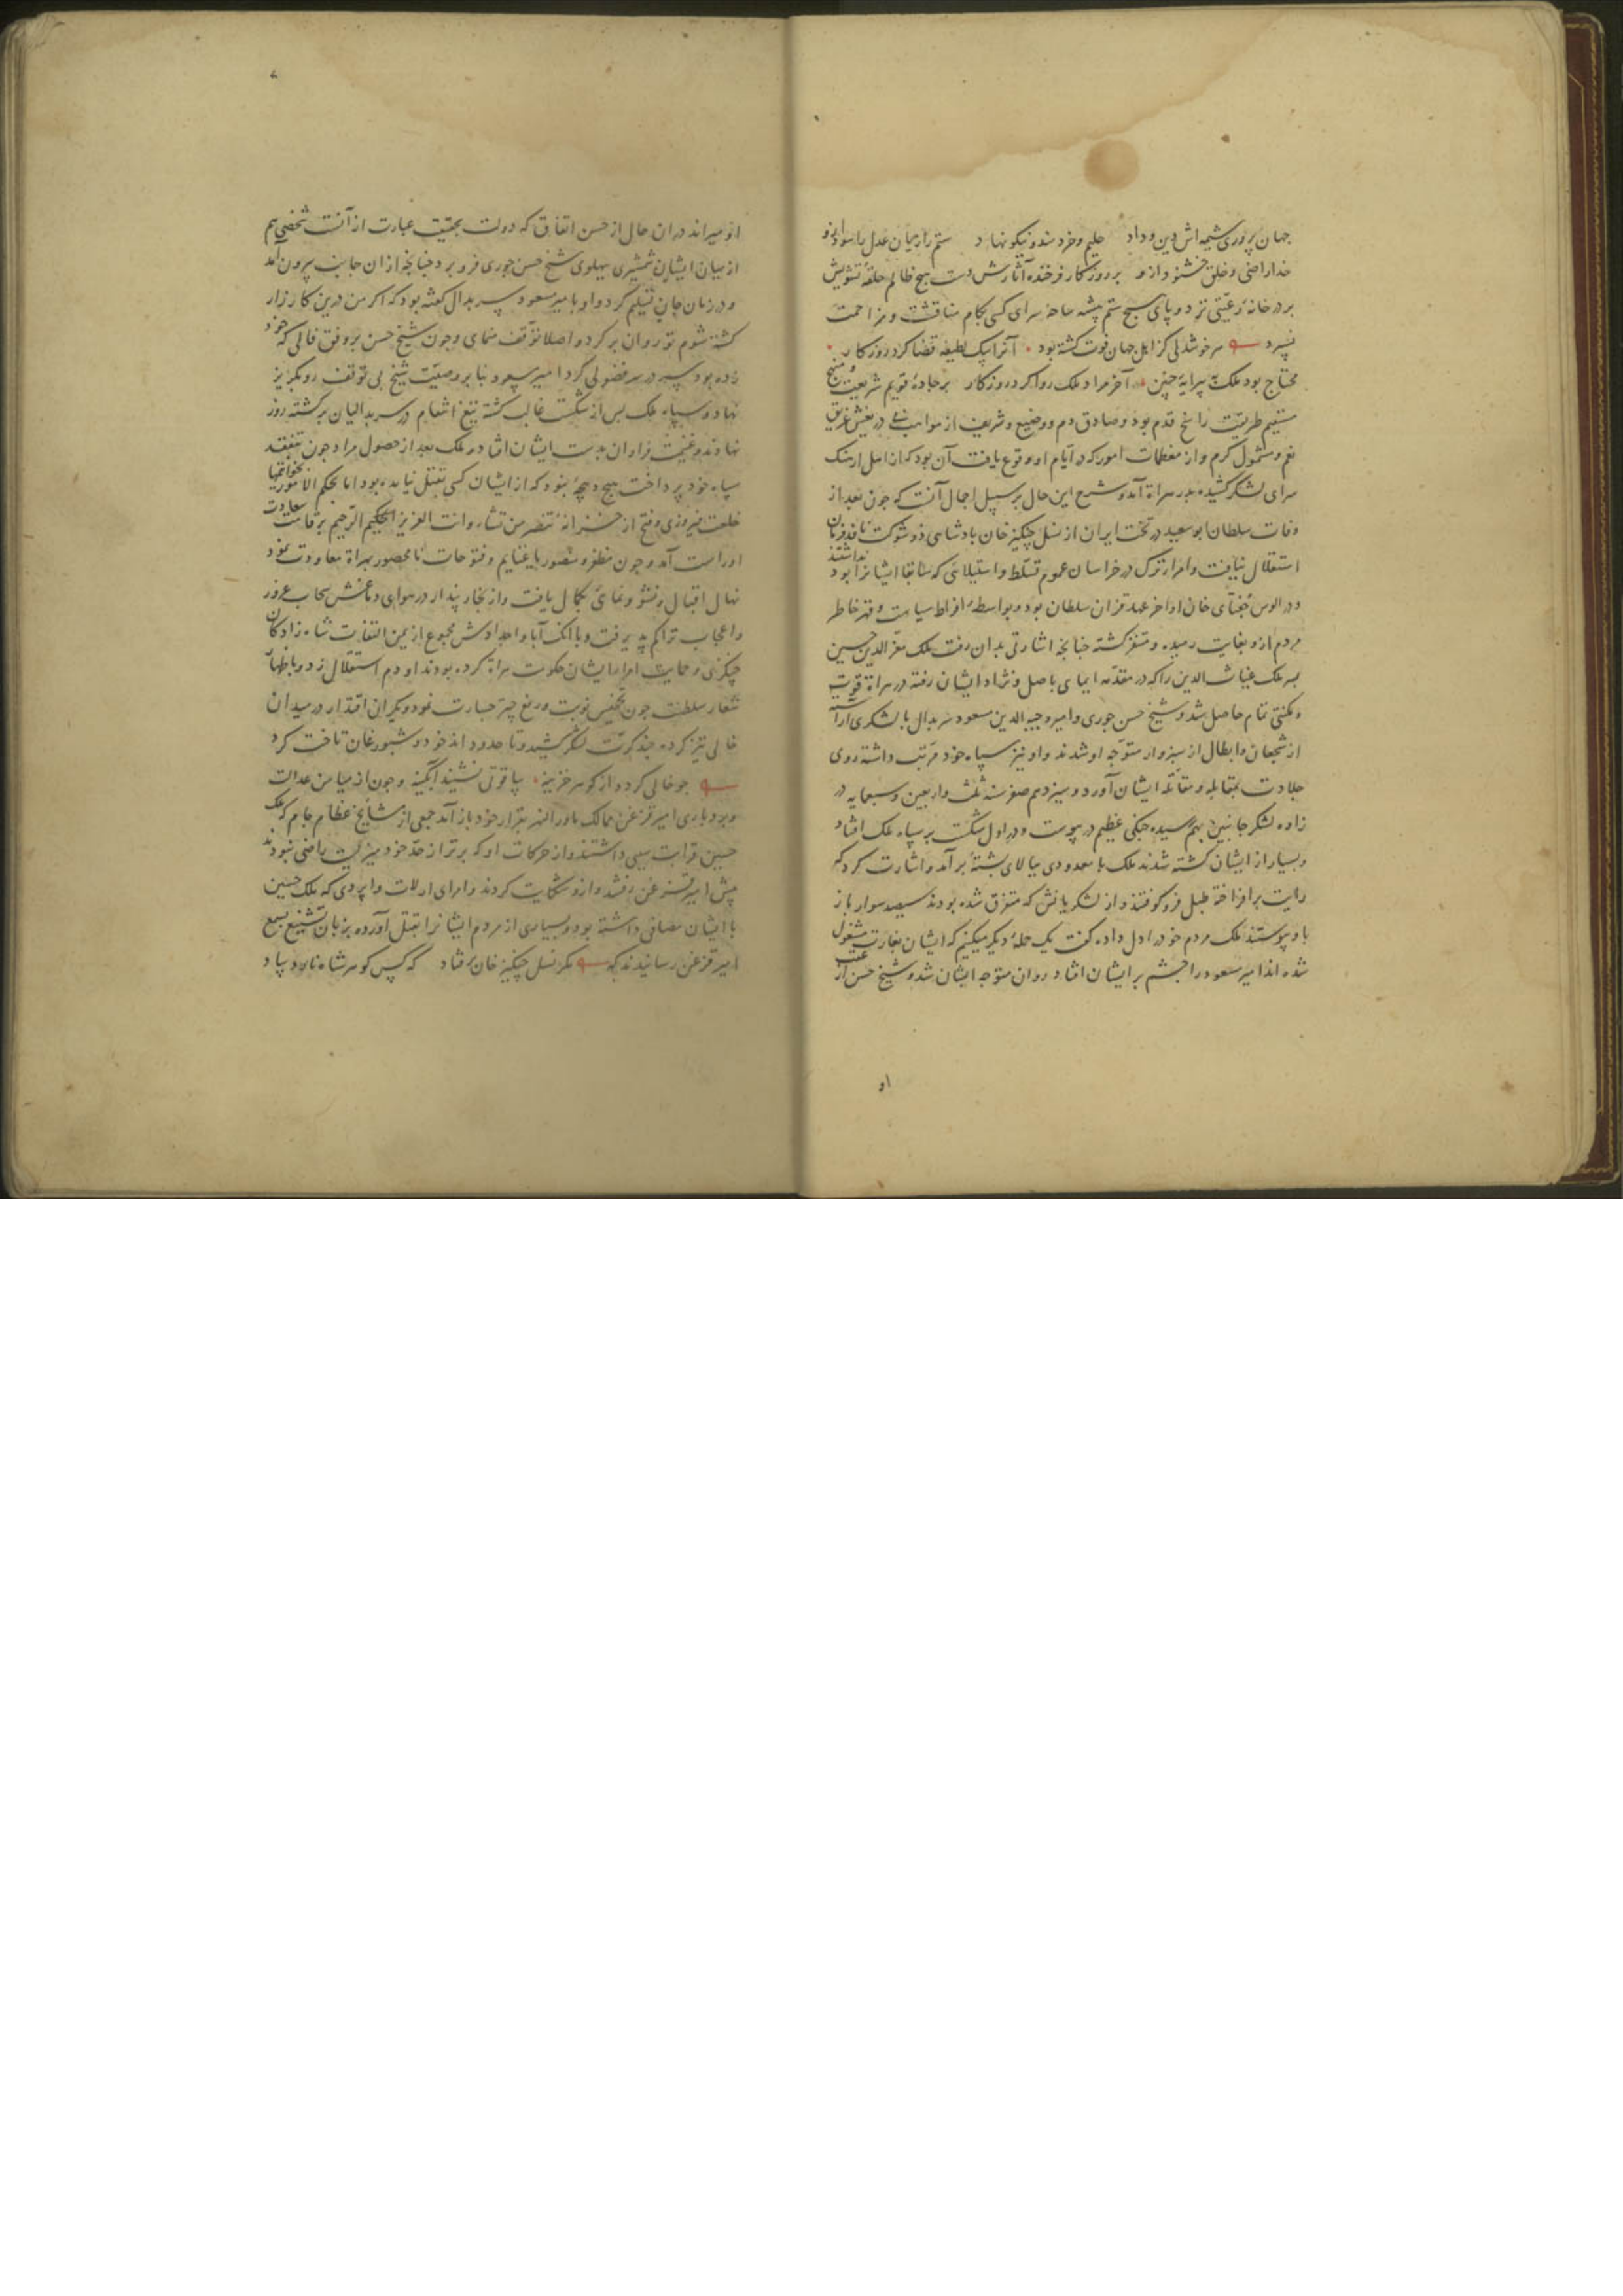 جهان پروری شیمه اش دین و داد حلیم و خردمند و نیکو نهاد ستم را زیمان عدل
خدا راضی و خلق خشنود ازو بر روزکار فرخنده آثارش دست هیچ ظالم حلقهٔ تشویش
بر در خانهٔ رعیتی نزد و پای هیچ ستم پیشه ساحهٔ سرای کسی بکام مناقشت و مزاحمت
نسپرد هر خوشدلی کز اهل جهان فوت کشته بود آنرا بیک لطیفه قضا کرد روزکار
محتاج بود ملک به پیرایهٔ چنین آخر مراد ملک روا کرد روزکار بر جادهٔ قویم شریعت و منهج
مستقیم طریقت راسخ قدم بود و صادق دم و وضیع و شریف از مواهب
نعم و مشمول کرم و از معظمات امور که در ایام او وقوع یافت آن بود که
سرای لشکر کشیده بدر هراة آمد و شرح این حال بر سبیل اجمال آنست که چون بعد از
وفات سلطان ابو سعید در تخت ایران از نسل چنکیز خان بادشاهی ذو شوکت نافذ فرمان
استقلال نیافت و امراء ترک در خراسان عموم تسلط و استیلائی که سابقا ایشانرا بود نداشتند
و در الوس جغتای خان اواخر عهد قزان سلطان بود و بواسطهٔ افراط سیاست و قهر خاطر
مردم ازو بغایت رمیده و متنفر کشته چنانچه اشارتی بدان رفت ملک معز الدین حسین
بسر ملک غیاث الدین را که در مقدمه ایمای باصل و نژاد ایشان رفته در هراة قوت
و مکنتی تمام حاصل شد و شیخ حسن جوری و امیر وجیه الدین مسعود سربدال با لشکری آراسته
از شجعان و ابطال از سبزوار متوجه او شدند و او نیز سپاه خود مرتب داشته روی
جلادت بمقابله و مقاتلهٔ ایشان آورد و سیزدهم صفر سنه ثلث و اربعین و سبعمایه در
زاوه لشکر جانبین بهم رسیده جنکی عظیم در پیوست و در اول شکست بر سپاه ملک افتاد
و بسیار از ایشان کشته شدند ملک با معدودی ببالای پشتهٔ بر آمد و اشارت کرد که
رایت برافراخته طبل فرو کوفتند و از لشکریانش که متفرق شده بودند سیصد سوار باز
باو پیوستند ملک مردم خود را دل داده کفت یک حملهٔ دیکر میکنیم که ایشان بغارت مشغول
شده اند امیر مسعود را چشم بر ایشان افتاد روان متوجه ایشان شد و شیخ حسن از عقب
او
او میراند در ان حال از حسن اتفاق که دولت بحقیقت عبارت از آنست شخصی هم
از میان ایشان شمشیری بپهلوی شیخ حسن جوری فرو برد چنانچه از ان جانب بیرون آمد
و در زمان جان تسلیم کرد و او با میر مسعود سربدال کفته بود که اکر من درین کارزار
کشته شوم تو روان برکرد و اصلا توقف منمای و چون شیخ حسن بر وفق فالی که خود
زده بود سپر در سر فضولی کرد امیر مسعود بنا بر وصیت شیخ بی توقف رو بکریز
نهاد و سپاه ملک بس از شکست غالب کشته تیغ انتقام در سربدالیان برکشته روز
نهادند و غنیمت فراوان بدست ایشان افتاد و ملک بعد از حصول مراد چون بتفقد
سپاه خود پرداخت هیچ نبود که از ایشان کسی بقتل نیامده بود اما بحکم الامور بخواتمها
خلعت فیروزی و فتح از خزانهٔ تنصر من تشاء و انت العزیز الحکیم الرحیم بر قامت سعادت
او راست آمد و چون مظفر و منصور با غنایم و فتوحات نامحصور بهراة معاودت نمود
نهال اقبال و نشو و نمای کمال یافت و از بخار پندار در هوای دماغش سحاب غرور
و اعجاب تراکم پذیرفت و با انک آبا و اجدادش مجموع از یمن التفات شاه زادکان
چنکزی و حمایت امراء ایشان حکومت هراة کرده بودند او دم استقلال زد و باظهار
شعار سلطنت چون تخمیس نوبت و رفع چتر جسارت نمود و یکران اقتدار در میدان
خالی تیز کرده چند کرت لشکر کشید و تا حدود اندخود و شبورغان تاخت کرد
چو خالی کرد و از کوهر خزینه بیاقوتی نشیند آبکینه و چون از میامن عدالت
و بردباری امیر قزغن ممالک ماورالنهر بقرار خود باز آمد جمعی از مشایخ عظام جام که ملک
حسین قرابت سببی داشتند و از حرکات او که برتر از حد خود میزیست راضی نبودند
پیش امیر قزغن رفتند و ازو شکایت کردند و امرای ارلات و اپردی که ملک حسین
با ایشان مصافی داشته بود و بسیاری از مردم ایشانرا بقتل آورده بزبان تشنیع بسمع
امیر قزغن رسانیدند که مکر نسل چنکیز خان بر فتاد که کس کوهر شاه نارد بیاد